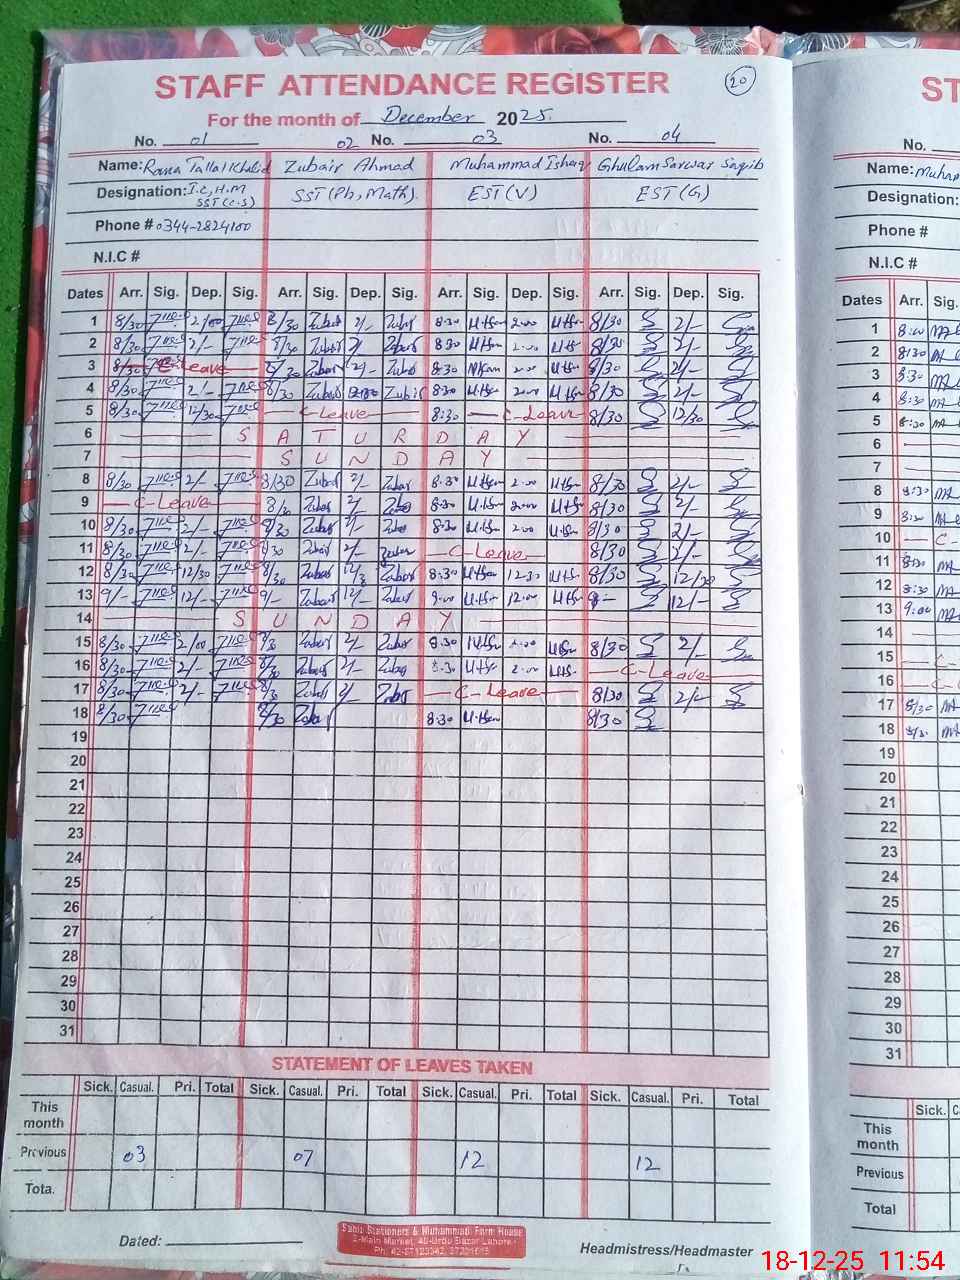 STAFF ATTENDANCE REGISTER
20
For the month of December 2025.
No. 01 02 No. 03 No. 04
Name: Rana Tallal Khalid Zubair Ahmad Muhammad Ishaq Ghulam Sarwar Saqib
Designation: I.C, H.M SST (C.S) SST (Ph, Math). EST (V) EST (G)
Phone # 0344-2824100
N.I.C #
Dates Arr. Sig. Dep. Sig. Arr. Sig. Dep. Sig. Arr. Sig. Dep. Sig. Arr. Sig. Dep. Sig.
1 8/30 2/00 8/30 Zubair 2/- Zubair 8:30 2:00 8/30 2/-
2 8/30 2/- 8/30 Zubair 2/- Zubair 8:30 2:00 8/30 2/-
3 8/30 C-Leave 8/30 Zubair 2/- Zubair 8:30 2:00 8/30 2/-
4 8/30 2/- 8/30 Zubair Zubair 8:30 2:00 8/30 2/-
5 8/30 12/30 C-Leave 8:30 C-Leave 8/30 12/30
6 SATURDAY
7 SUNDAY
8 8/30 2/- 8/30 Zubair 2/- Zubair 8:30 2:00 8/30 2/-
9 C-Leave 8/30 Zubair 2/- Zubair 8:30 2:00 8/30 2/-
10 8/30 2/- 8/30 Zubair 2/- Zubair 8:30 2:00 8/30 2/-
11 8/30 2/- 8/30 Zubair 2/- Zubair C-Leave 8/30 2/-
12 8/30 12/30 8/30 Zubair Zubair 8:30 12:30 8/30 12/30
13 9/- 12/- 9/- Zubair 12/- Zubair 9:00 12:00 9/- 12/-
14 SUNDAY
15 8/30 2/00 8/30 Zubair 2/- Zubair 8:30 2:00 8/30 2/-
16 8/30 2/- 8/30 Zubair 2/- Zubair 8:30 2:00 C-Leave
17 8/30 2/- 8/30 Zubair 2/- Zubair C-Leave 8/30 2/-
18 8/30 8/30 Zubair 8:30 8/30
19
20
21
22
23
24
25
26
27
28
29
30
31
STATEMENT OF LEAVES TAKEN
Sick. Casual. Pri. Total Sick. Casual. Pri. Total Sick. Casual. Pri. Total Sick. Casual. Pri. Total
This month
Previous 03 07 12 12
Tota.
Dated:
Sabir Stationers & Muhammadi Form House
2-Main Market, 40-Urdu Bazar Lahore.
Headmistress/Headmaster
ST
No.
Name: Muham
Designation:
Phone #
N.I.C #
Dates Arr. Sig.
1 8:00
2 8:30
3 8:30
4 8:30
5 8:30
6
7
8 8:30
9 8:30
10 C-
11 8:30
12 8:30
13 9:00
14
15 C-
16 C-
17 8/30
18
19
20
21
22
23
24
25
26
27
28
29
30
31
Sick. C
This month
Previous
Total
18-12-25 11:54